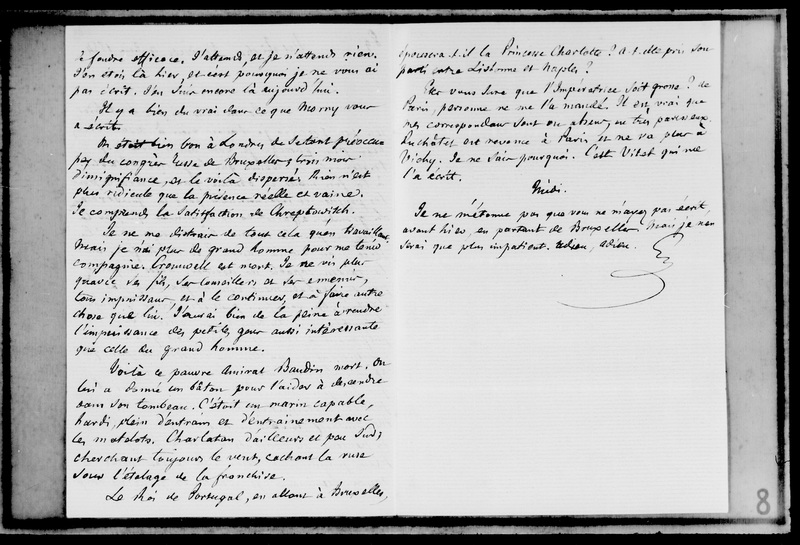 foudre efficace. J'attends, et je n'attends rien.
J'en étois là hier, et c'est pourquoi je ne vous ai
pas écrit. J'en suis encore là aujourd'hui.
Il y a bien du vrai dans ce que Morny vous
a écrit.
On bien bon à Londres de se tant préoccu-
per du congrès russe de Bruxelles; trois mois
d'insignifiance, et le voilà dispersé. Rien n'est
plus ridicule que la présence réelle et vaine.
Je comprends la satisfaction de Chreptowitch.
Je ne me distrais de tout cela qu'en travaillant.
Mais je n'ai plus de grand homme pour me tenir
compagnie. Cromwell est mort. Je ne vis plus
qu'avec ses fils, ses conseillers et ses ennemis,
tous impuissans, et à le continuer, et à faire autre
chose que lui. J'aurai bien de la peine à rendre
l'impuissance des petites gens aussi intéressante
que celle du grand homme.
Voilà ce pauvre Amiral Baudin mort. On
lui a donné un bâton pour l'aider à descendre
dans son tombeau. C'étoit un marin capable,
hardi, plein d'entrain et d'entrainement avec
les matelots. Charlatan d'ailleurs et peu sûr;
cherchant toujours le vent, cachant la ruse
sous l'étalage de la franchise.
Le Roi de Portugal, en allant à Bruxelles,
épousera-t-il la Princesse Charlotte? A-t-elle pris son
parti entre Lisbonne et Naples?
Etes vous sure que l'Impératrice soit grosse? De
Paris, personne ne me l'a mandé. Il est vrai que
mes correspondans sont ou absens, ou très paresseux.
Duchâtel est revenu à Paris et ne va plus à
Vichy. Je ne sais pourquoi. C'est Vitet qui me
l'a écrit.
Midi.
Je ne m'étonne pas que vous ne m'ayez pas écrit,
avant hier, en partant de Bruxelles. Mais je n'en
serai que plus impatient. Adieu, adieu.
G
8